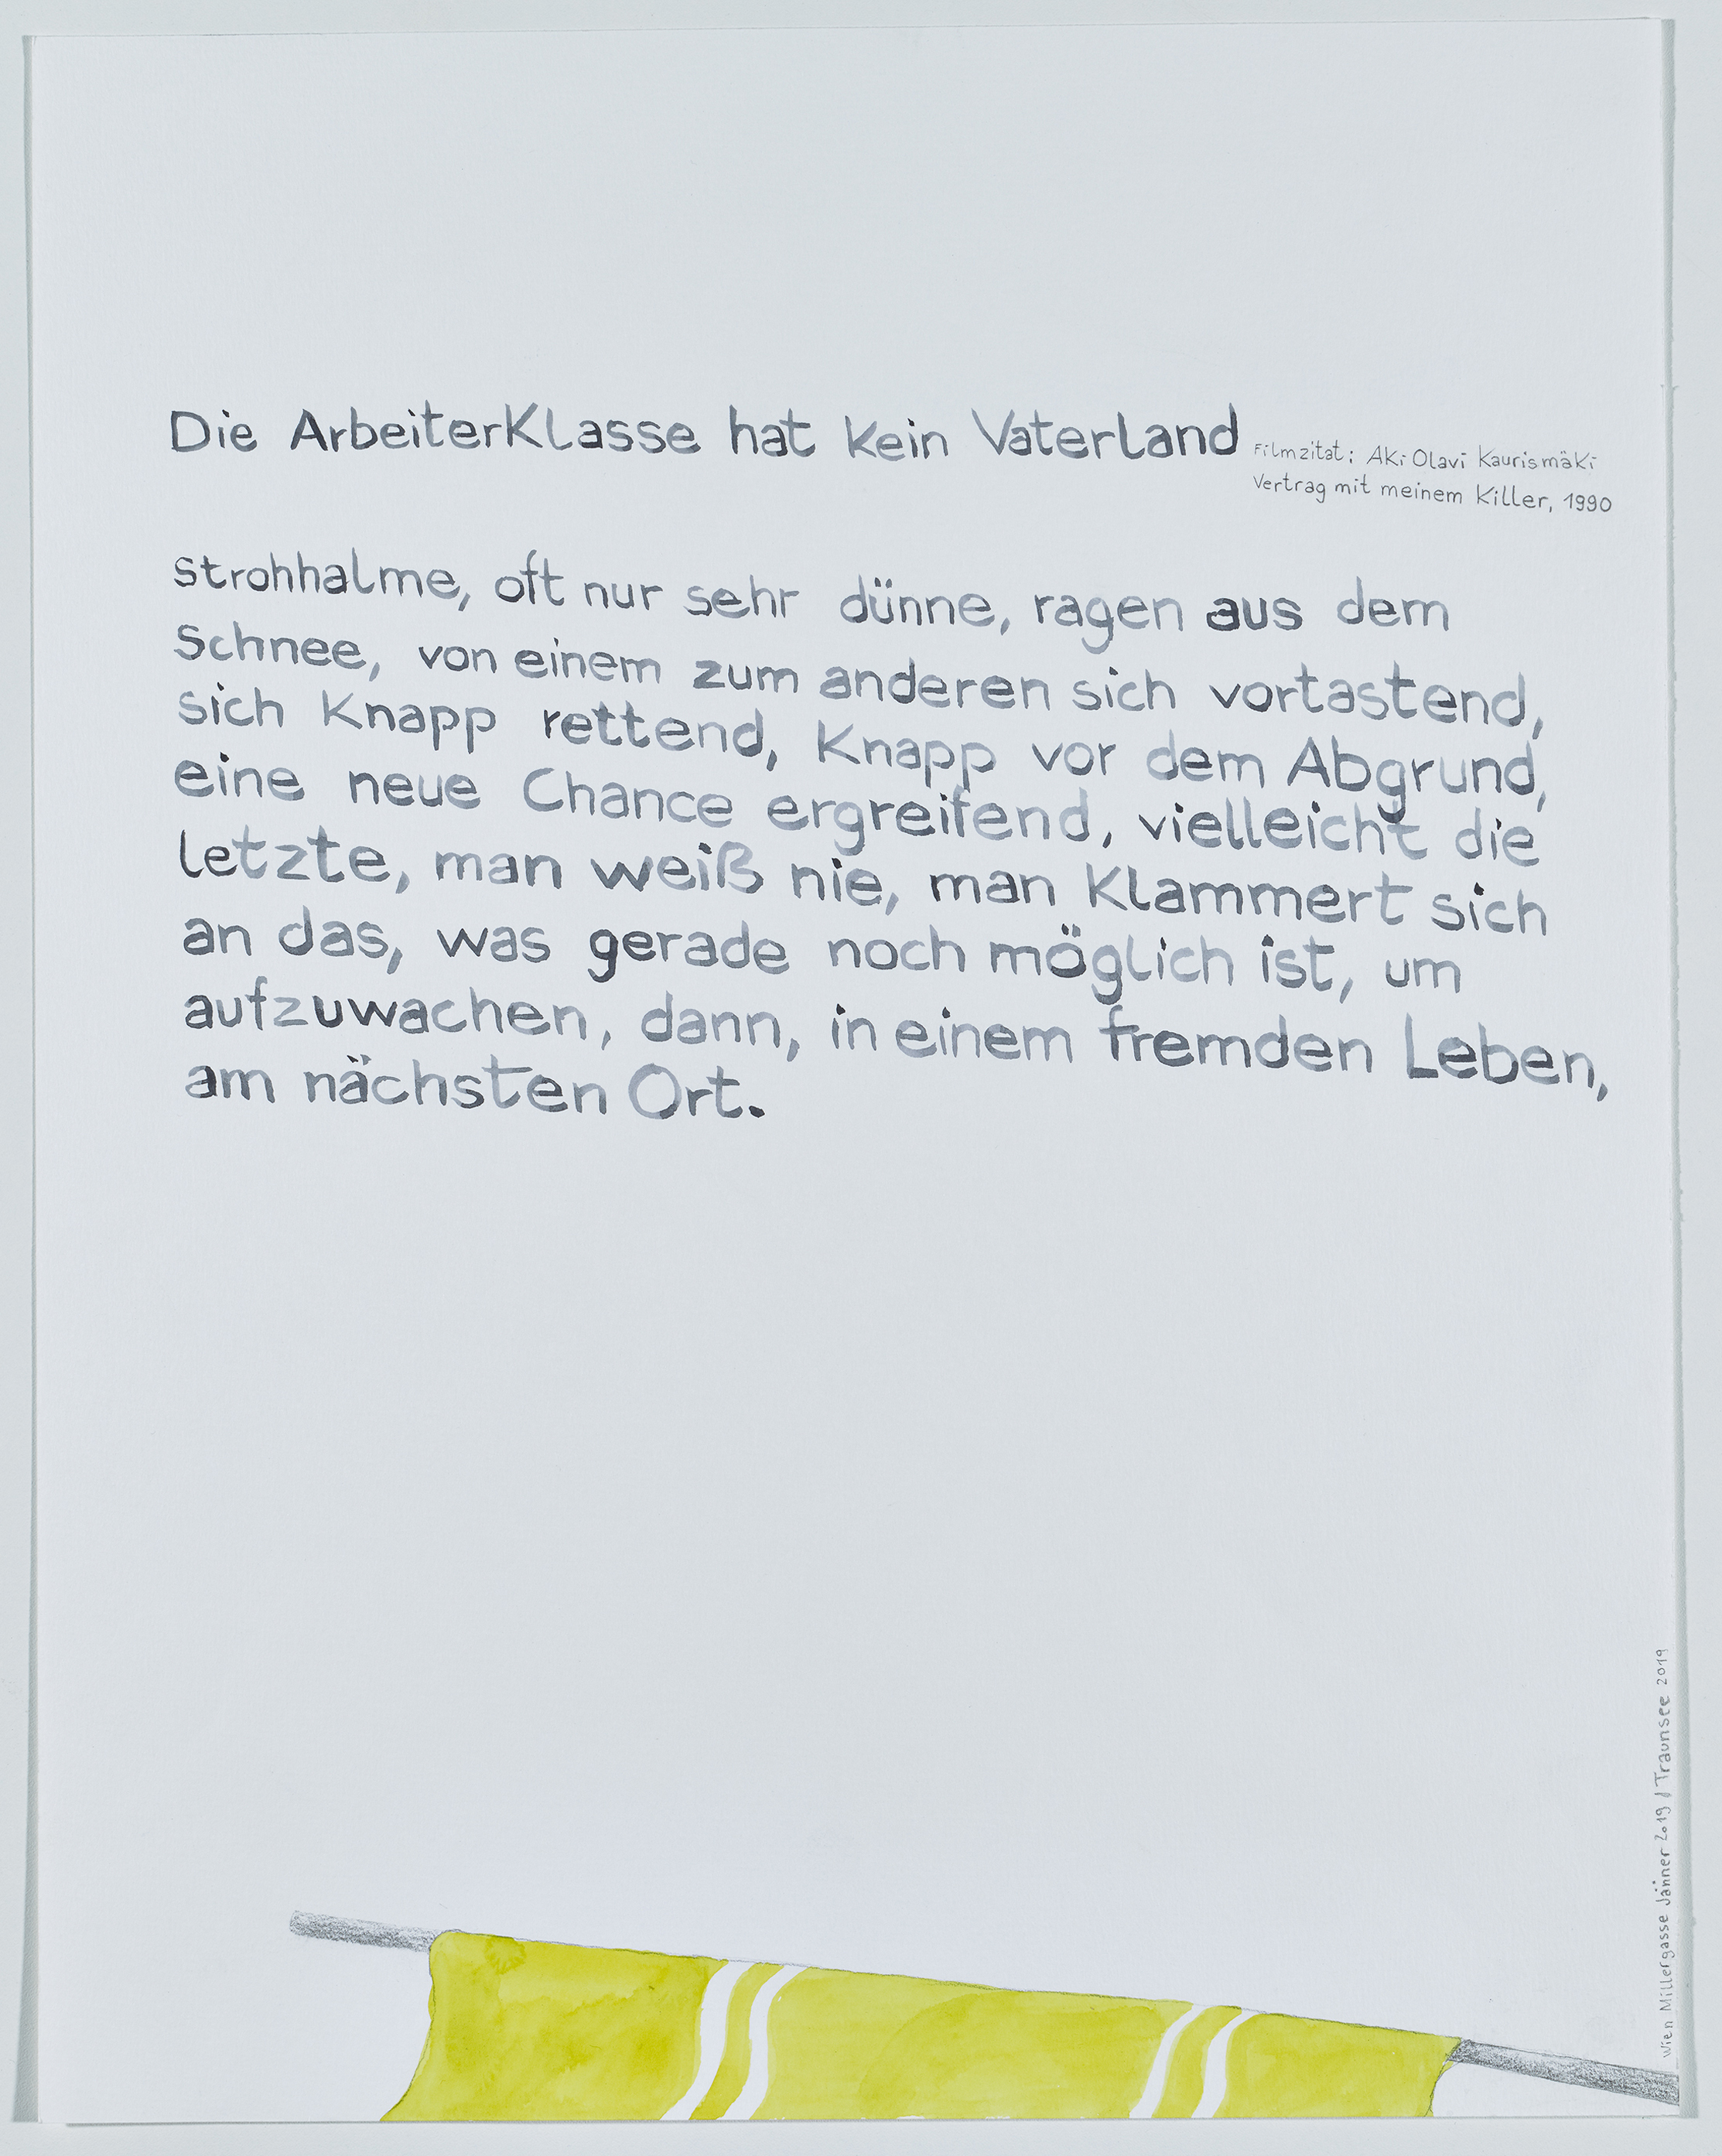 Die Arbeiterklasse hat kein Vaterland
Filmzitat: Aki Olavi Kaurismäki
Vertrag mit meinem Killer, 1990
strohhalme, oft nur sehr dünne, ragen aus dem
Schnee, von einem zum anderen sich vortastend,
sich knapp rettend, knapp vor dem Abgrund,
eine neue Chance ergreifend, vielleicht die
letzte, man weiß nie, man klammert sich
an das, was gerade noch möglich ist, um
aufzuwachen, dann, in einem fremden Leben,
am nächsten Ort.
Wien Millergasse Jänner 2019 / Traunsee 2019